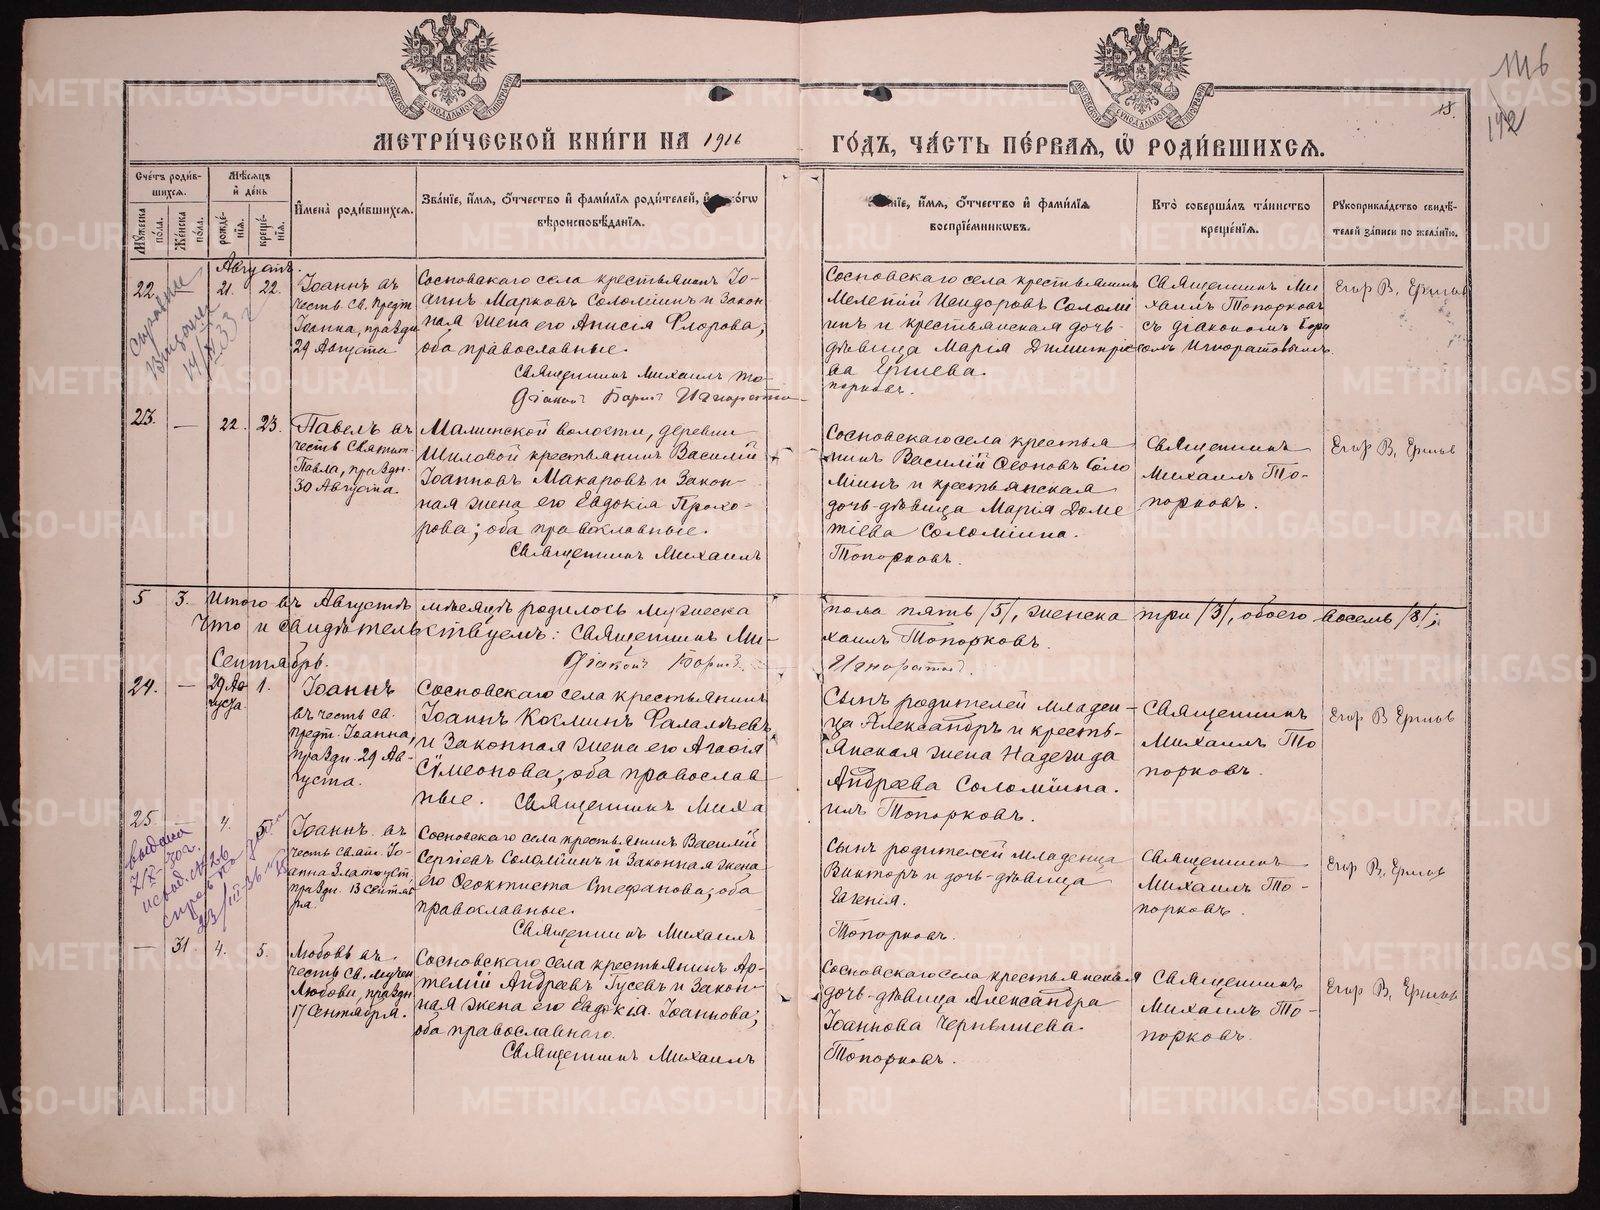 МЕТРИ́ЧЕСКОЙ КНИ́ГИ НА 1916
ГО́ДЪ, ЧА́СТЬ ПЕ́РВАЯ, Ѡ҆ РОДИ́ВШИХСЯ.
15.
142
Сче́тъ роди́в-
шихся.
Мужеска по́ла.
Же́нска по́ла.
Мѣ́сяцъ и҆ де́нь
рожде́-
нїя.
креще́-
нїя.
И҆мена̀ роди́вшихся.
Зва́нїе, и҆́мя, ѻ҆́тчество и҆ фами́лїя роди́телей, и҆ како́гѡ
вѣроисповѣ́данїя.
Зва́нїе, и҆́мя, ѻ҆́тчество и҆ фами́лїя
воспрїе́мниковъ.
Кто̀ соверша́лъ та́инство
креще́нїя.
Рукоприкла́дство свидѣ́-
телей за́писи по жела́нїю.
Августъ.
22. — 21. 22.
Іоаннъ въ
честь Св. Предт.
Іоанна, праздн.
29 Августа
Сосновскаго села крестьянинъ Іо-
аннъ Марковъ Соломѣинъ и закон-
ная жена его Анисія Флорова,
оба православные.
Священникъ Михаилъ То-
Діаконъ Борис Игнорато
Сосновскаго села крестьянинъ
Мелетій Исидоровъ Соломѣ
инъ и крестьянская дочь-
дѣвица Марія Димитріе
ва Ершева.
порковъ.
Священникъ Ми
хаилъ Топорковъ
съ діакономъ Бори
сомъ
Егор В. Ершов
23. — 22. 23.
Павелъ въ
честь Святит.
Павла, праздн.
30 Августа.
Маминской волости, деревни
Шиловой крестьянинъ Василій
Іоанновъ Макаровъ и закон-
ная жена его Евдокія Прохо-
рова; оба православные.
Священникъ Михаилъ
Сосновскаго села крестья
нинъ Василій Леоновъ Соло
мѣинъ и крестьянская
дочь-дѣвица Марія Доме
тіева Соломѣина.
Топорковъ.
Священникъ
Михаилъ То-
порковъ.
Егор В. Ершов
5 3. Итого въ Августѣ мѣсяцѣ родилось мужеска пола пять /5/, женска три /3/, обоего восемь /8/;
Что и свидѣтельствуемъ: Священникъ Ми-
хаилъ Топорковъ.
Діакон Борис
Сентябрь.
24. — 29 Ав
густа 1.
Іоаннъ
въ честь св.
предт. Іоанна,
праздн. 29 Ав-
густа.
Сосновскаго села крестьянинъ
Іоаннъ Косминъ Фалалѣевъ
и законная жена его Агафія
Сѵмеонова, оба православ
ные. Священникъ Миха
Сынъ родителей младен-
ца Александръ и кресть-
янская жена Надежда
Андреева Соломѣина.
илъ Топорковъ.
Священникъ
Михаилъ То
порковъ.
Егор В Ершов
25. — 4. 5.
Іоаннъ въ
честь Свят. Іо-
анна Златоуст.
праздн. 13 Сентяб
ря.
Сосновскаго села крестьянинъ Василій
Сергіевъ Соломѣинъ и законная жена
его Феоктиста Стефанова, оба
православные.
Священникъ Михаилъ
Сынъ родителей младенца
Викторъ и дочь-дѣвица
Евгенія.
Топорковъ.
Священникъ
Михаилъ То-
порковъ.
Егор В. Ершов
— 31. 4. 5.
Любовь въ
честь Св. мучен.
Любови, праздн
17 Сентября.
Сосновскаго села крестьянинъ Ар-
темій Андреевъ Гусевъ и закон-
ная жена его Евдокія Іоаннова;
оба православнаго.
Священникъ Михаилъ
Сосновскаго села крестьянская
дочь-дѣвица Александра
Іоаннова Чернышева.
Топорковъ.
Священникъ
Михаилъ То-
порковъ.
Егор В. Ершов
METRIKI.GASO-URAL.RU